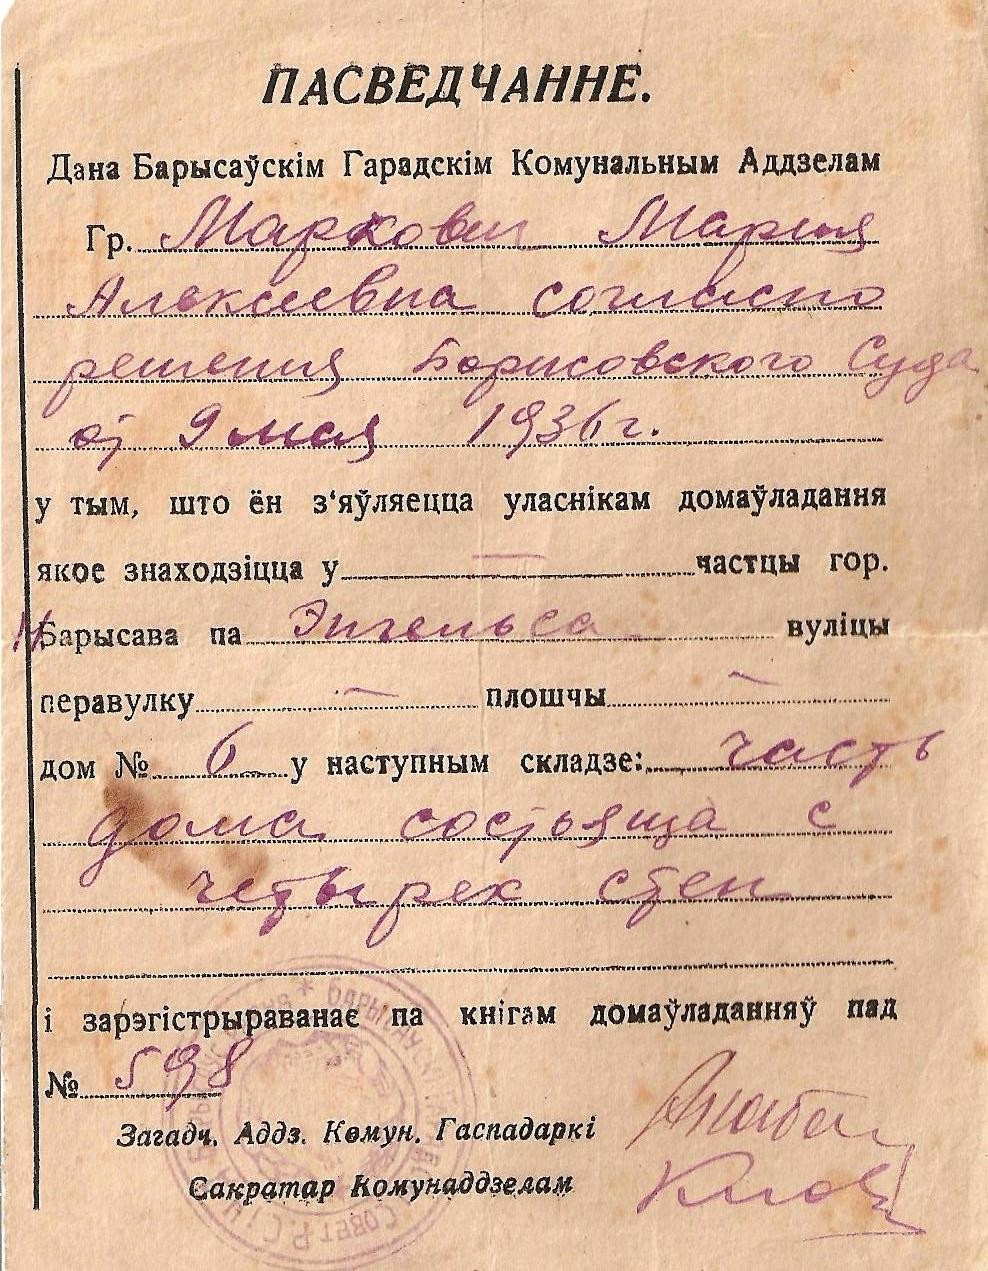 ПАСВЕДЧАННЕ.
Дана Барысаўскім Гарадскім Комунальным Аддзелам
Гр. Маркович Мария
Алексеевна согласно
решения Борисовского Суда
от 9 мая 1936 г.
у тым, што ён з‘яўляецца уласнікам домаўладання
якое знаходзіцца у — частцы гор.
Барысава па Энгельса вуліцы
перавулку — плошчы —
дом № 6 у наступным складзе: часть
дома состояща с
четырех стен
і зарэгістрыраванає па кнігам домаўладанняў пад
№ 598
Загадч. Аддз. Комун. Гаспадаркі
Сакратар Комунаддзелам